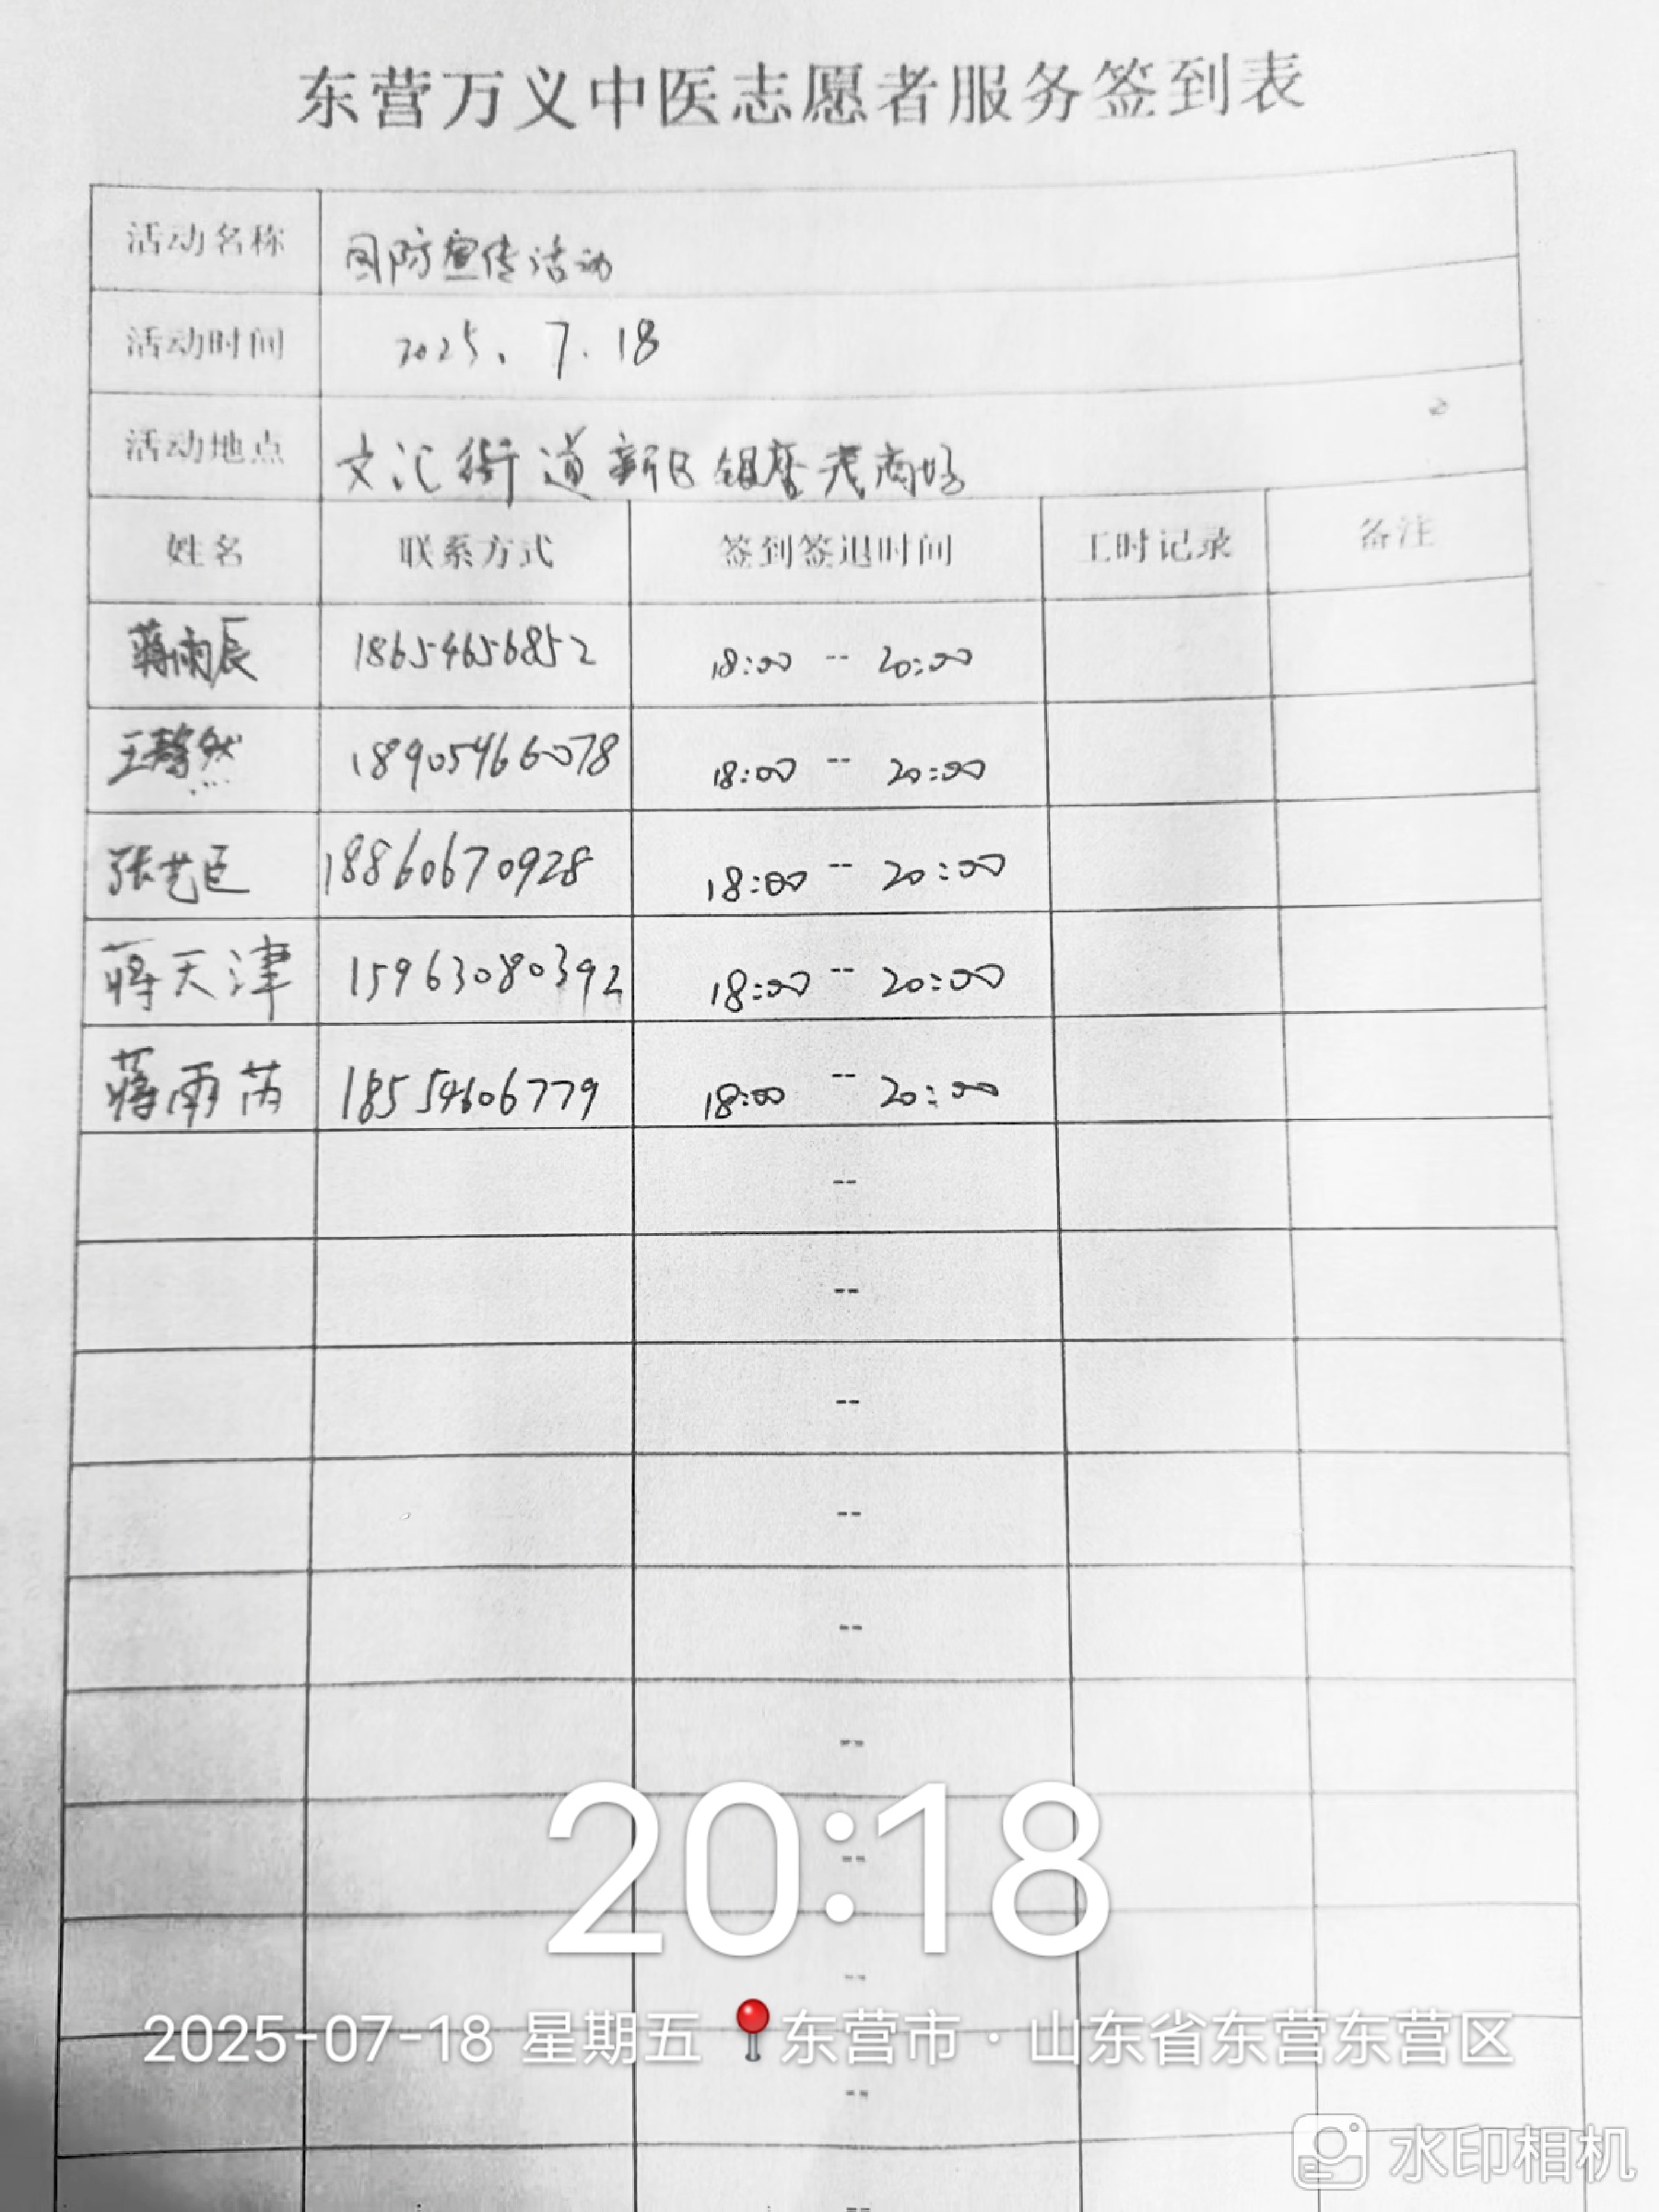 东营万义中医志愿者服务签到表
活动名称 国防宣传活动
活动时间 2025.7.18
活动地点 文汇街道新日银座 商场
姓名 联系方式 签到签退时间 工时记录 备注
蒋雨辰 18654656852 18:00 -- 20:00
王 然 18905466078 18:00 -- 20:00
张艺臣 18860670928 18:00 -- 20:00
蒋天津 15963080392 18:00 -- 20:00
蒋雨芮 18554606779 18:00 -- 20:00
--
--
--
--
--
--
--
--
--
--
20:18
2025-07-18 星期五 东营市·山东省东营东营区
水印相机